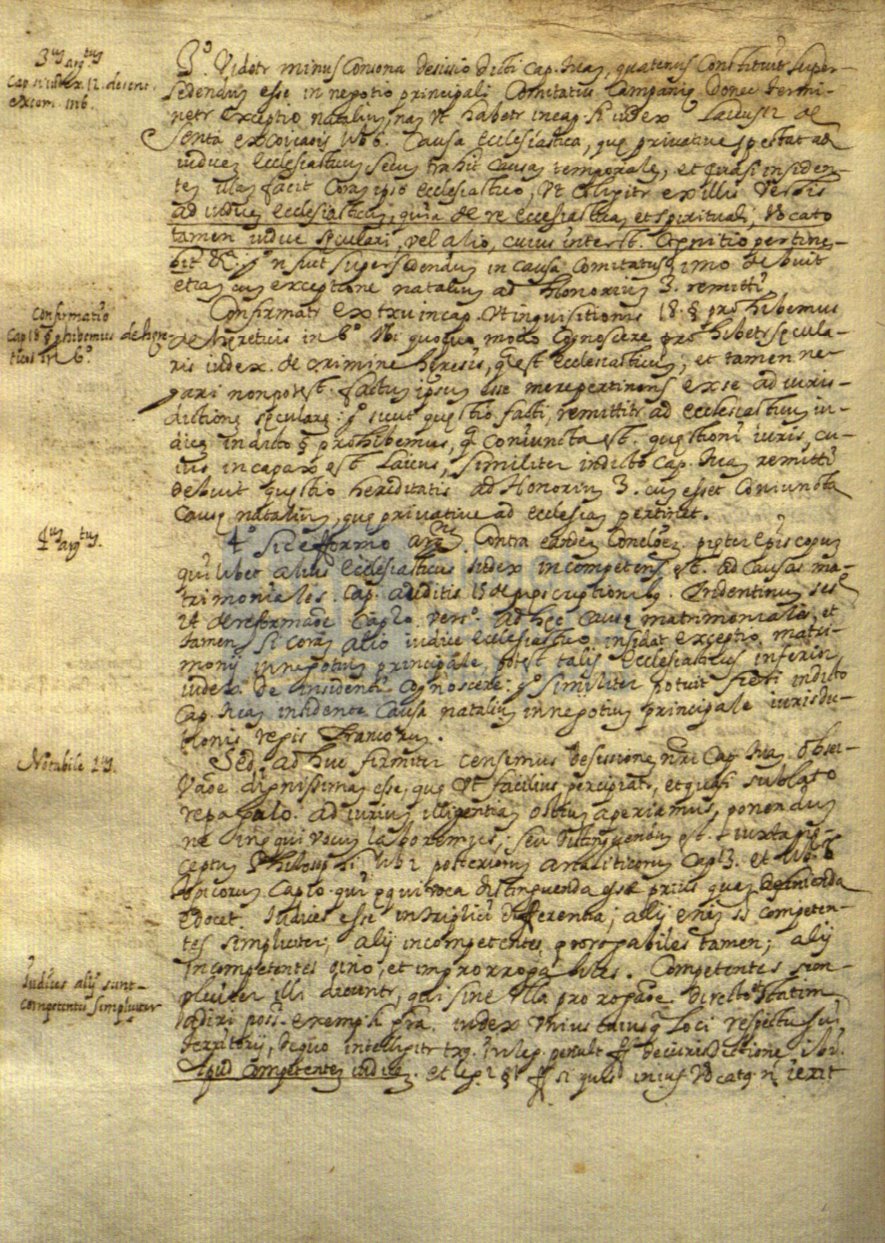 3us argtus
Cap. si iudex 12. de sent.
excom. in 6.
3o. Videtr minus consona desisio dicti cap. tuam, quatenus constituit super-
sedendum esse in negotio principali Comitatus Campanię donec termi-
netr exceptio natalium nam vt habetr in cap. si iudex laicus 12 de
sententia excoicaois lib 6. Causa ecclesiastica, quę privative spectat ad
iudicem Ecclesiasticum secum trahit causam temporalem, et quasi insiden-
tem illam facit coram ipso Ecclesiastico, vt colligitr ex illis verbis
ad iudicem Ecclesiasticum, quia de re Ecclesiastica, et spirituali, vocato
tamen iudice sęculari, vel alio, cuius interest. Cognitio pertine-
bit &c. go n fuit supersedendum in causa Comitatus imo debuit
etiam cum exceptione natalium ad Honorium 3. remitti
Confirmatio
Cap 18 § prohibemus de hęre-
ticis in 6o.
Confirmatr ex txu in cap. Vt inquisitionis 18. § prohibemus
de hęreticis in 6o. Vbi quoquo modo cognoscere prohibetr sęcula-
ris iudex de crimine hęresis, qd est Ecclesiasticum, et tamen ne-
gari non potest factum ipsum esse mere pertinens ex se ad iuris-
dictionem sęcularem: go sicut quęstio facti remittitr ad ecclesiasticum iu-
dicem in dicto § prohibemus, q coniuncta est quęstioni iuris, cu-
ius incapax est Laicus, similiter in dicto cap. tuam remitti
debuit quęstio hereditatis ad Honorium 3. cum esset coniuncta
causę natalium, quę privative ad ecclesiam pertinet.
4us argtus.
4o sic efformo argm. Contra eandem Conclōem pręter Episcopum
quilibet alius Ecclesiasticus iudex incompetens est ad causas ma-
trimoniales. cap. auditis 15 de pręscriptionibg. Tridentinum ses
24 de reformaoe cap 20 vers. ad hęc causę matrimoniales, et
tamen si coram alio iudice ecclesiastico insidat exceptio matri-
monij in negotium principale, potest talis Ecclesiasticus inferior
iudex de insidenti cognoscere: go similiter potuit fieri in dicto
cap. tuam insidente causa natalium in negotium principale iurisdi-
ctionis regis Francorum.
Notabile 1us.
Sed adhuc firmiter censemus desissionem nri cap tuam obser-
vaoe dignissimam esse, quę vt facilius percipiatr, et quasi sublato
repagulo ad iurium illigentiam ostium aperiamus, ponendum
ne in ęquivocum laboremus, seu distinguendum est iuxta prę-
ceptum Philosophi lib 2 posteriorum analiticorum cap 13. et lib. 6
topicorum cap 10 qui ęquivoca distinguenda esse prius quam definienda
edocet. Iudices esse in triplici differentia; alij enim st competen-
tes simpliciter; alij incompetentes, prorogabiles tamen; alij
incompetentes oino, et improrrogabiles. Competentes sim-
Iudices alij sunt
competentes simpliciter
pliciter illi dicuntr, qui sine vlla prorogaoe directo statim
adiri possnt exempli gra. iudex vnius cuiusq loci respectu sui
territorij, de quo intelligitr txg. in leg. penult ff de iurisdictione ibi.
apud competentem iudicem. et leg. 2 ff si quis in ius vocatg n ierit